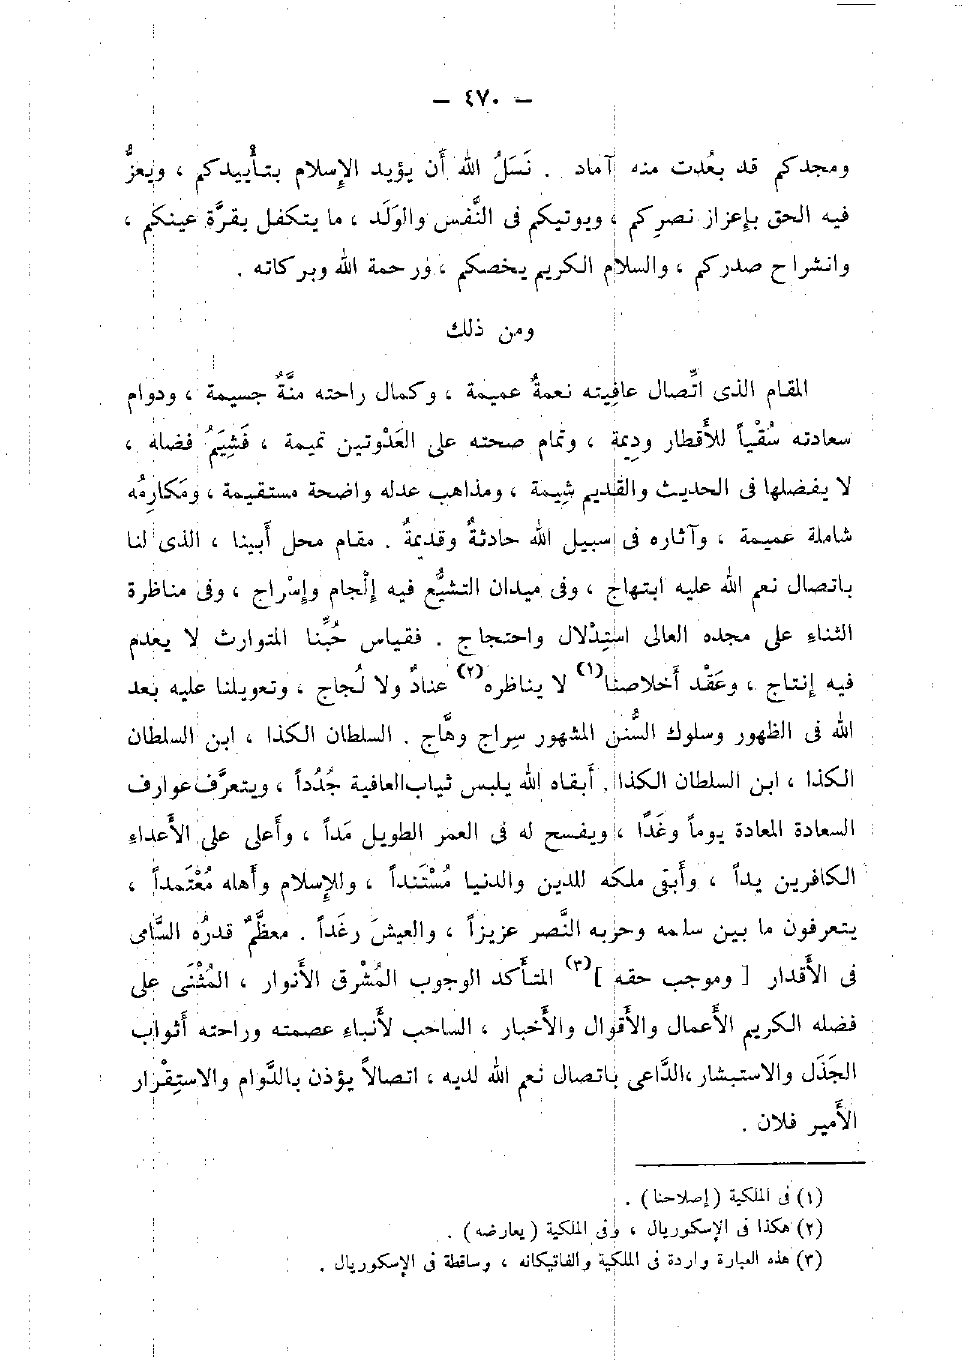 — ٤٧٠ —
ومجدكم قد بعُدت منه آماد . نَسَلُ الله أن يؤيد الإسلام بتأييدكم ، ويعزُّ
فيه الحق بإعزاز نصرِكم ، ويوتيكم فى النَّفس والوَلَد ، ما يتكفل بقرَّة عينكم ،
وانشراح صدركم ، والسلام الكريم يخصكم ، ورحمة الله وبركاته .
ومن ذلك
المقام الذى اتِّصال عافِيته نعمةٌ عميمة ، وكمال راحته منَّةٌ جسيمة ، ودوام
سعادته سُقْياً للأقطار ودِيمة ، وتمام صحته على العَدْوتين تميمة ، فَشِيَمُ فضله ،
لا يفضلها فى الحديث والقديم شِيمة ، ومذاهب عدله واضحة مستقيمة ، ومَكارِمُه
شاملة عميمة ، وآثاره فى سبيل الله حادثةٌ وقديمةٌ . مقام محل أبينا ، الذى لنا
باتصال نعم الله عليه ابتهاج ، وفى ميدان التشيُّع فيه إلْجام وإسْراج ، وفى مناظرة
الثناء على مجده العالى استِدْلال واحتجاج . فقياس حُبِّنا المتوارث لا يعدم
فيه إنتاج ، وعَقْد أخلاصنا(١) لا يناظره(٢) عنادٌ ولا لُجاج ، وتعويلنا عليه بعد
الله فى الظهور وسلوك السُّنن المشهور سِراج وهَّاج . السلطان الكذا ، ابن السلطان
الكذا ، ابن السلطان الكذا . أبقاه الله يلبس ثياب العافية جُدُداً ، ويتعرَّف عوارف
السعادة المعادة يوماً وغَدًا ، ويفسح له فى العمر الطويل مَداً ، وأعلى على الأعداء
الكافرين يداً ، وأبقى ملكه للدين والدنيا مُسْتَنداً ، وللإسلام وأهله مُعْتَمداً ،
يتعرفون ما بين سلمه وحزبه النَّصر عزيزاً ، والعيشَ رغَداً . معظَّمٌ قدرُه السَّامى
فى الأقدار [ وموجب حقه ](٣) المتأكد الوجوب المُشْرق الأنوار ، المُثْنَى على
فضله الكريم الأعمال والأقوال والأخبار ، الساحب لأنباء عصمته وراحته أثواب
الجَذَل والاستبشار ،الدَّاعى باتصال نعم الله لديه ، اتصالاً يؤذن بالدَّوام والاستِقْرار
الأمير فلان .
(١) فى الملكية (إصلاحنا) .
(٢) هكذا فى الإسكوريال ، وفى الملكية (يعارضه) .
(٣) هذه العبارة واردة فى الملكية والفاتيكانه ، وساقطة فى الإسكوريال .